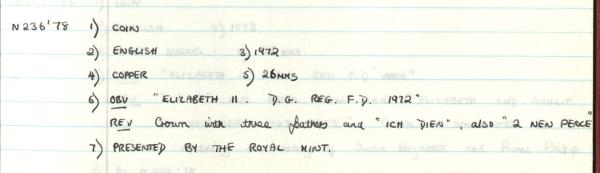 N236'78 1) COIN
2) ENGLISH 3) 1972
4) COPPER 5) 26MMS
6) OBV "ELIZABETH II. D.G. REG. F.D. 1972"
REV Crown with three feathers and "ICH DIEN", also "2 NEW PENCE"
7) PRESENTED BY THE ROYAL MINT.